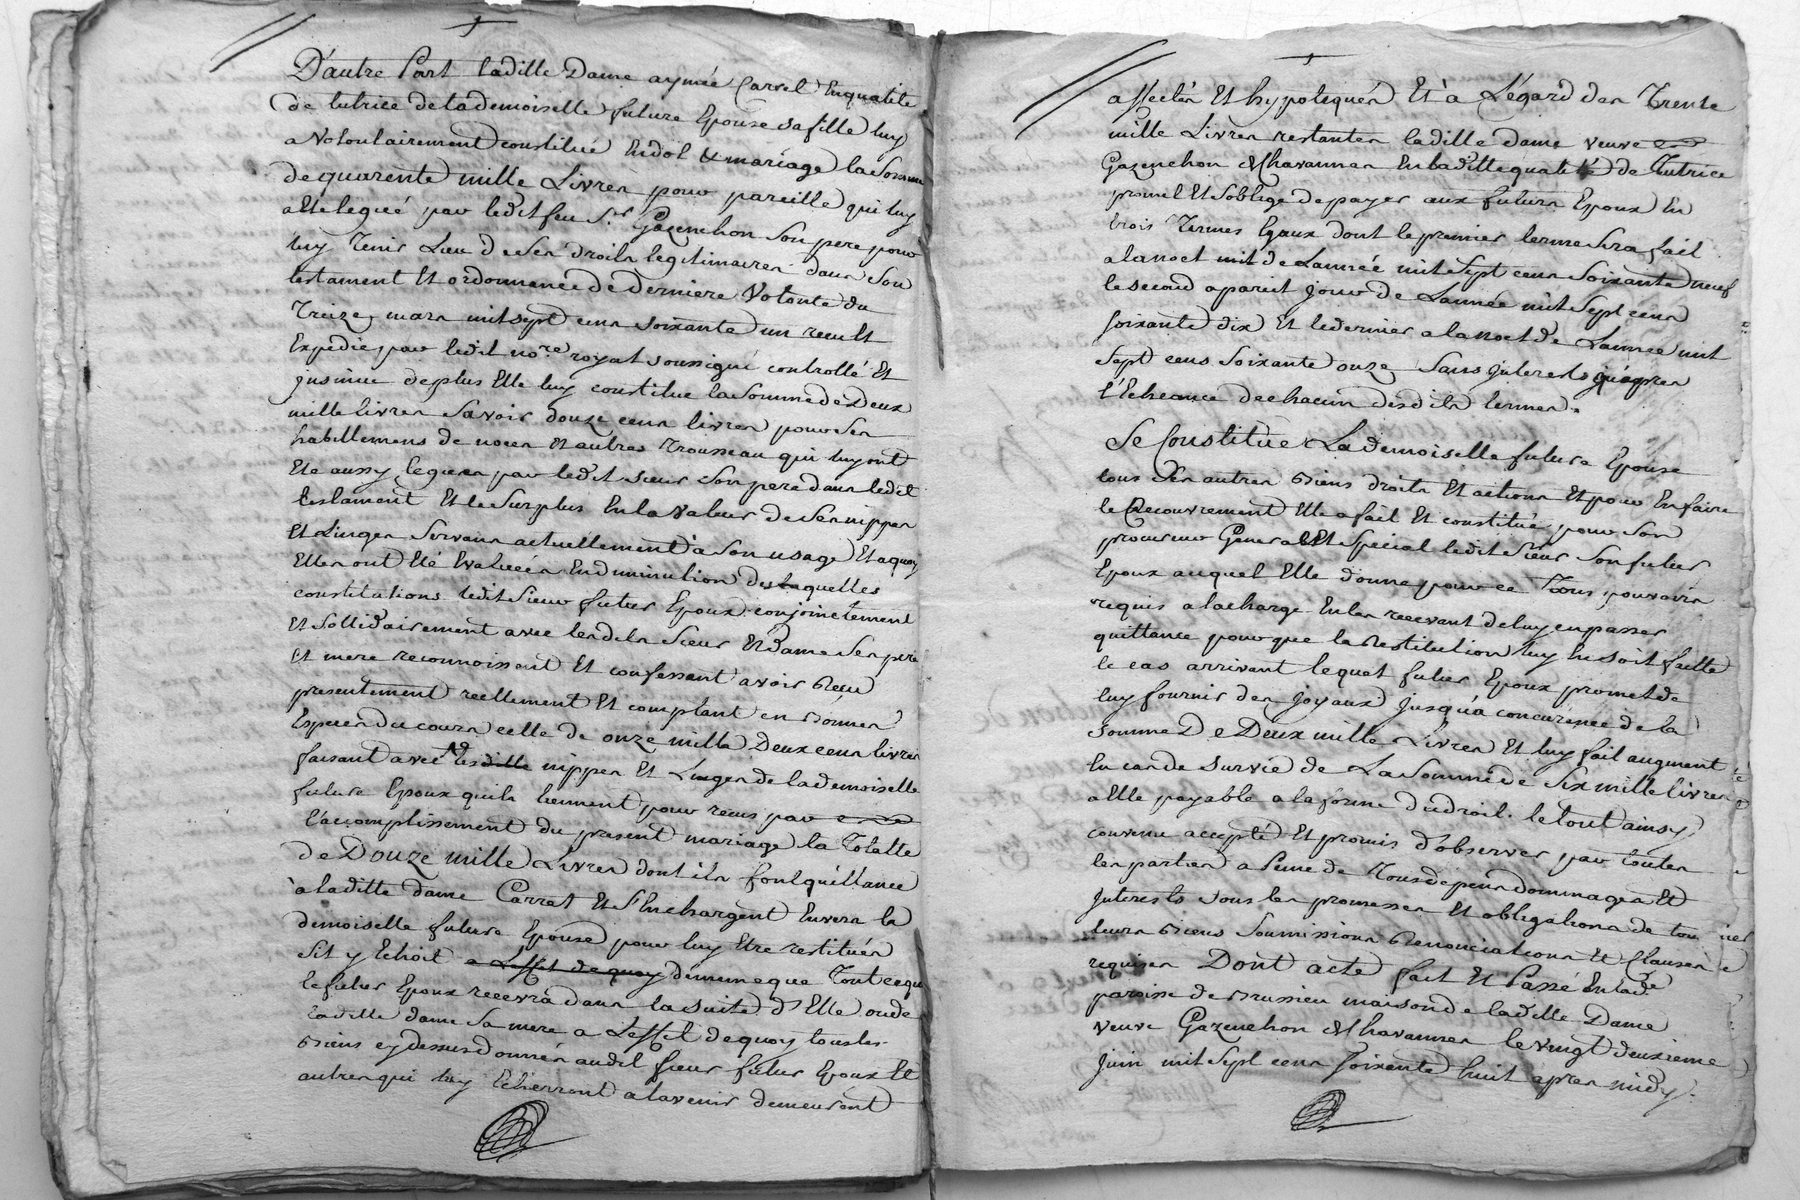 D'autre Part ladille Dame aymée Carret Enqualité
de tutrice de lademoiselle future Epouse sa fille luy
a Volontairement constitué En dot & mariage la Somme
de quarente mille Livres pour pareille qui luy
a Ete legué par ledit feu Sr Gazenchon Son pere pour
luy Tenir Lieu de Ses droits legitimaires dans Son
testament Et ordonnance de derniere Volonté du
Treize mars mil sept cens soixante un recu Et
Expedié par ledit nore royal soussigné controllé Et
insinué deplus Elle luy constitue la Somme de Deux
mille livres Savoir douze cens livres pour Ses
habillemens de noces Et autres Trousseau qui luy ont
Ete aussy legués par ledit sieur Son pere dans ledit
testament Et le Surplus En la Valeur de Ses nippes
Et Linges Servans actuellement a Son usage Et a quoy
Elles ont Eté Evaluées En diminution desquelles
constitutions ledit Sieur futur Epoux conjointement
Et Sollidairement avec lesdits Sieur Et dame Ses pere
Et mere reconnoissent Et confessent avoir Recu
presentement reellement Et comptant en Bonnes
Especes du cours celle de onze mille Deux cens livres
faisant avec les nippes Et Linges de lademoiselle
future Epoux quils tiennent pour recus par
l'accomplissement du present mariage la Totalle
de Douze mille Livres dont ils font quittance
à ladille dame Carret Et S'Enchargent Envers la
demoiselle future Epouse pour luy Etre restitués
Sil y Echoit a Leffet de quoy dememeque Tout ceque
le futur Epoux recevra dans la suite d'Elle oude
ladille dame Sa mere a Leffet de quoy tous les
Biens cy dessus donnés audit sieur futur Epoux Et
autres qui luy Echerront a lavenir demeurent
affectés Et hypotequés Et à L'égard des Trente
mille Livres restantes ladille dame veuve
Gazenchon de Chavannes En ladille qualité de Tutrice
promet Et Soblige de payer aux futurs Epoux En
trois Termes Egaux dont le premier terme Sera fait
a la noel mil de Lannée mil Sept cens Soixante neuf
le second a pareil jour de Lannée mil Sept cens
soixante dix Et le dernier a la noel de Lannée mil
Sept cens Soixante onze Sans jnterests qúapres
l'Echeance de chacun desdits termes.
Se Constitue Lademoiselle future Epouse
tous Ses autres Biens droits Et actions Et pour En faire
le Recouvrement Elle a fait Et constitué pour Son
procureur General Et Special ledit Sieur Son futur
Epoux auquel Elle donne pour ce Tous pouvoirs
requis a lacharge En les recevant de luy en passer
quittance pour que la Restitution luy En Soit faitte
le cas arrivant lequel futur Epoux promet de
luy fournir des joyaux jusqu'à concurence de la
Somme de Deux mille Livres Et luy fait augment
En cas de Survie de La Somme de Six mille livres
a Elle payable a la forme du droit. le tout ainsy
convenu accepté Et promis d'observer par toutes
les parties a Peine de Tous depens dommages Et
jnterests Sous les promesses Et obligations de tous
leurs Biens Soumissions Renonciations Et Clauses
requises Dont acte fait Et Passé En lade
paroisse de Brussieu maison de ladille Dame
veuve Gazenchon de Chavannes le vingt deuxieme
Juin mil Sept cens soixante huit apres midy.